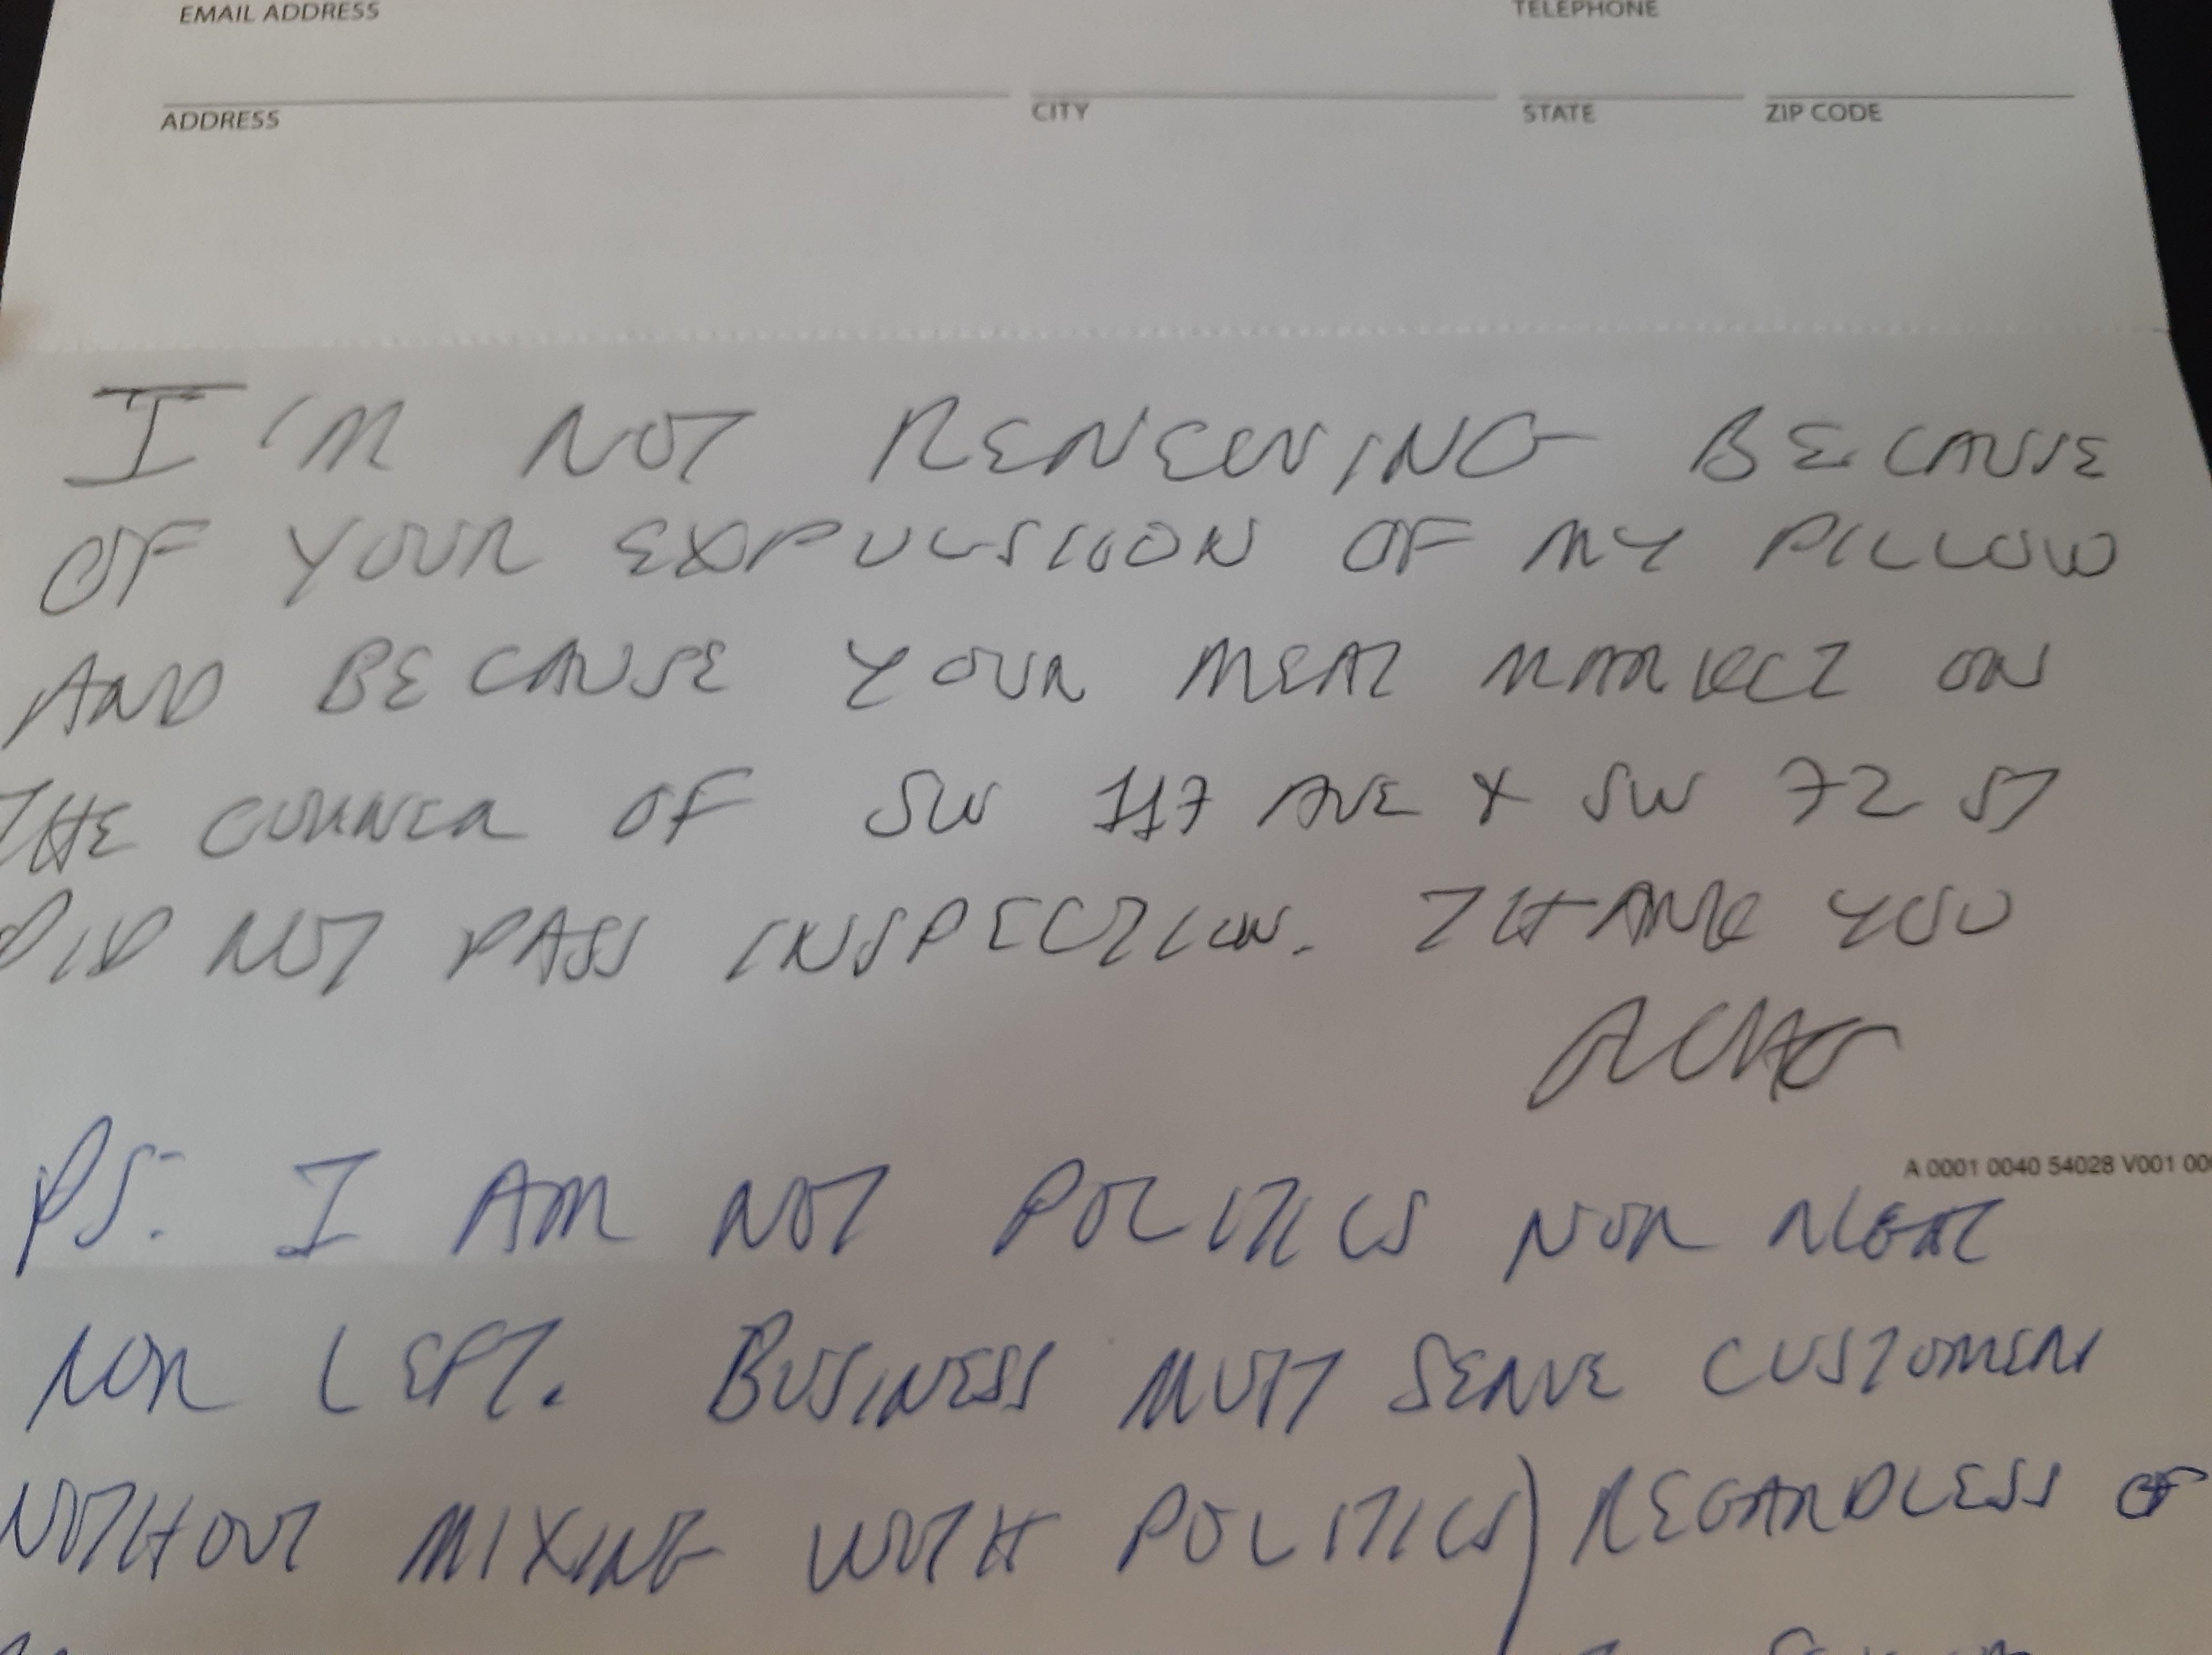 EMAIL ADDRESS TELEPHONE
ADDRESS CITY STATE ZIP CODE
I'M NOT RENEWING BECAUSE
OF YOUR EXPULSION OF MY PILLOW
AND BECAUSE YOUR MEAT MARKET ON
THE CORNER OF SW 117 AVE & SW 72 ST
DID NOT PASS INSPECTION. THANK YOU
A 0001 0040 54028 V001 00
PS: I AM NOT POLITICS NOR
NOR LEFT. BUSINESS MUST SERVE CUSTOMERS
WITHOUT MIXING WITH POLITICS) REGARDLESS OF